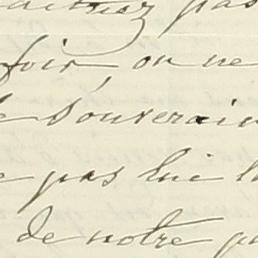 pas
foir, on ne
le souverain
pas lui
de notre